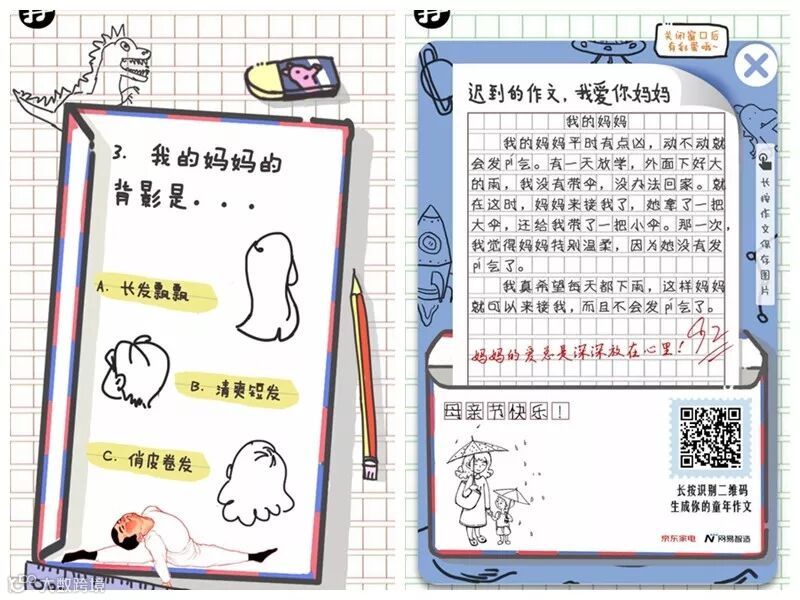 3. 我的妈妈的
背影是...
A. 长发飘飘
B. 清爽短发
C. 俏皮卷发
大数跨境
关闭窗口后
有彩蛋哦~
迟到的作文,我爱你妈妈
我的妈妈
我的妈妈平时有点凶,动不动就
会发pí气。有一天放学,外面下好大
的雨,我没有带伞,没办法回家。就
在这时,妈妈来接我了,她拿了一把
大伞,还给我带了一把小伞。那一次,
我觉得妈妈特别温柔,因为她没有发
pí气了。
我真希望每天都下雨,这样妈妈
就可以来接我,而且不会发pí气了。
92
妈妈的爱总是深深放在心里!
长按作文保存图片
母亲节快乐!
长按识别二维码
生成你的童年作文
京东家电 网易智造